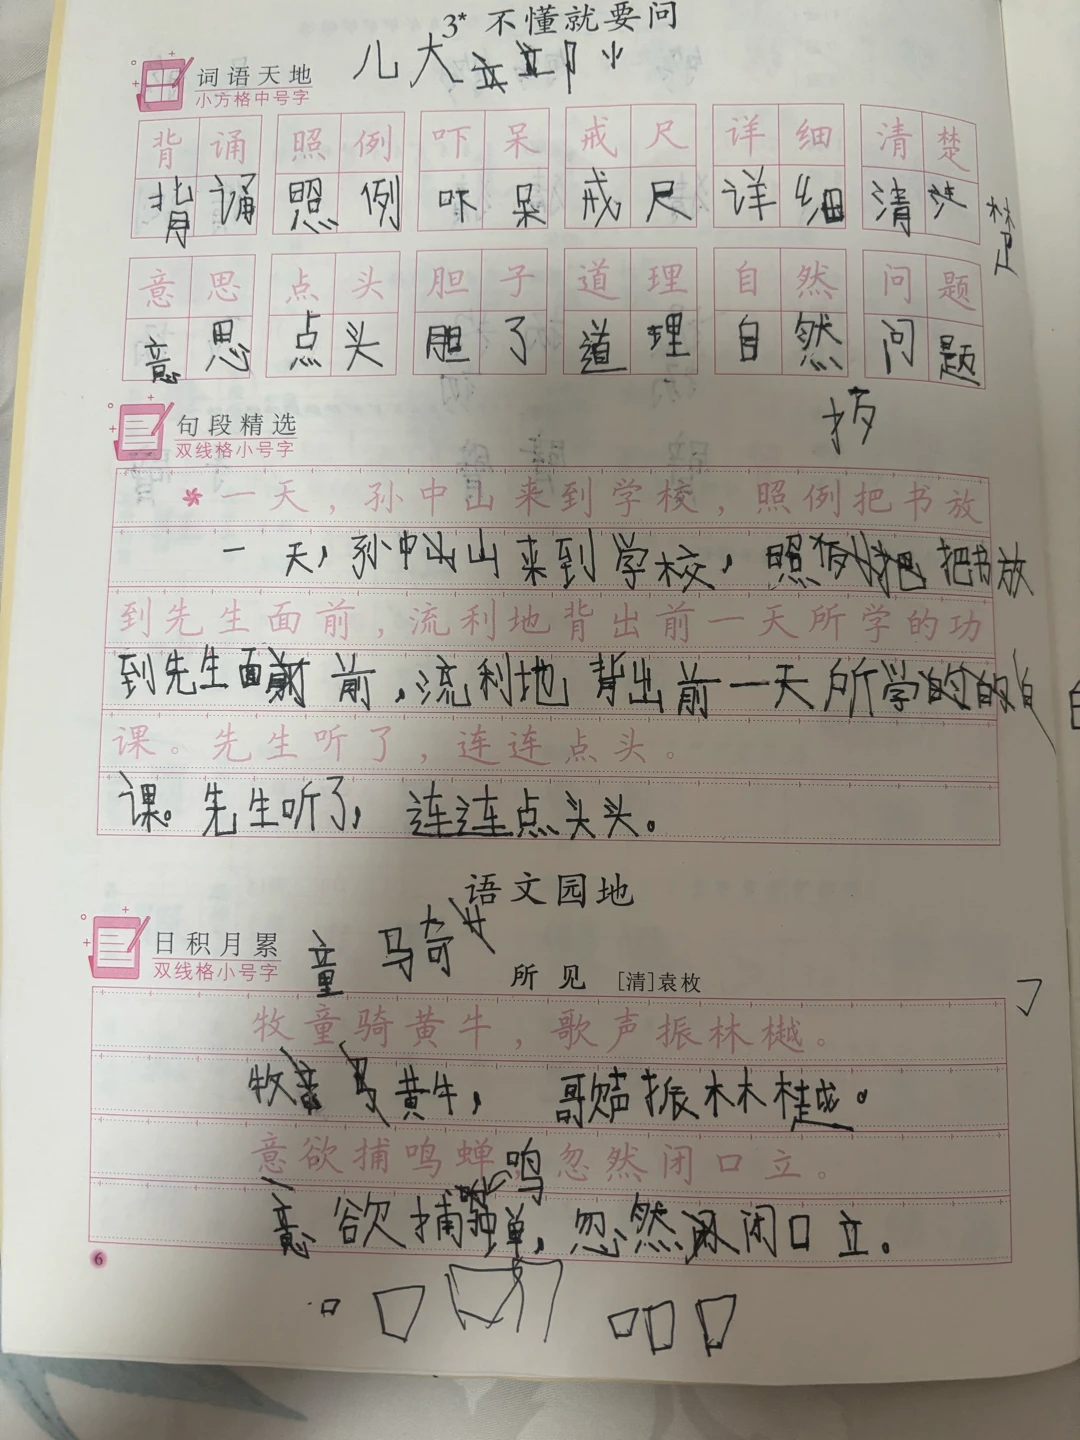 3* 不懂就要问
词语天地
小方格中号字
儿大立立阝小
背诵 照例 吓呆 戒尺 详细 清楚
背诵 照例 吓呆 戒尺 详细 清
楚
意思 点头 胆子 道理 自然 问题
意思 点头 胆了 道理 自然 问题
句段精选
双线格小号字
一天，孙中山来到学校，照例把书放
一天，孙中山来到学校，照例把书放
到先生面前，流利地背出前一天所学的功
到先生面前，流利地背出前一天所学的
课。先生听了，连连点头。
课。先生听了，连连点头头。
语文园地
日积月累
双线格小号字
童 马奇
所见 [清]袁枚
牧童骑黄牛，歌声振林樾。
牧 黄牛，歌声振林樾。
意欲捕鸣蝉，忽然闭口立。
鸣
意欲捕蝉，忽然闭口立。
6